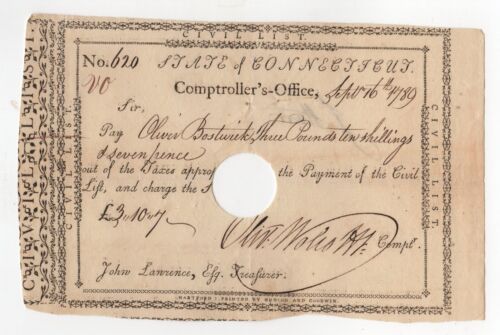 CIVIL LIST
No. 620 STATE of CONNECTICUT.
Comptroller's-Office, Sept 16th 1789
Sir,
Pay Oliver Bostwick Three Pounds ten shillings
& seven pence
out of the Taxes approp the Payment of the Civil
List, and charge the S
£3,,10,,7
Oliv. Wolcott Jr. Compt.
John Lawrence, Esq. Treasurer.
HARTFORD: PRINTED BY HUDSON AND GOODWIN.
CIVIL LIST
CIVIL LIST
CIVIL LIST